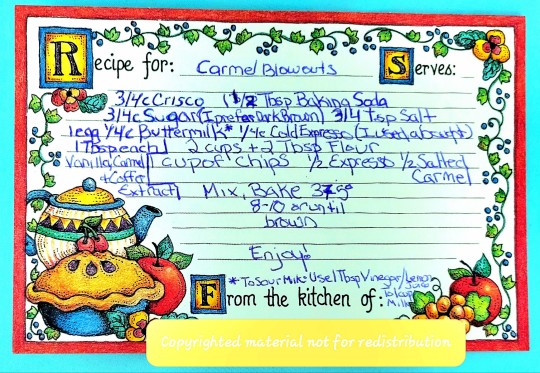 Recipe for: Carmel Blowouts Serves:
3/4 c Crisco 1 1/2 Tbsp Baking Soda
3/4 c Sugar (I prefer Dark Brown) 3/4 tsp Salt
1 egg 1/4 c Buttermilk* 1/4 c Cold Expresso (I used
1 Tbsp each 2 cups + 2 Tbsp Flour
Vanilla, Carmel cup of chips 1/2 Expresso 1/2 Salted
+ Coffee Carmel
Extract Mix, BAKE
8-10 or until
brown
Enjoy!
*To Sour Milk: Use 1 Tbsp Vinegar/Lemon
Juice
From the kitchen of: to
Milk
Copyrighted material not for redistribution